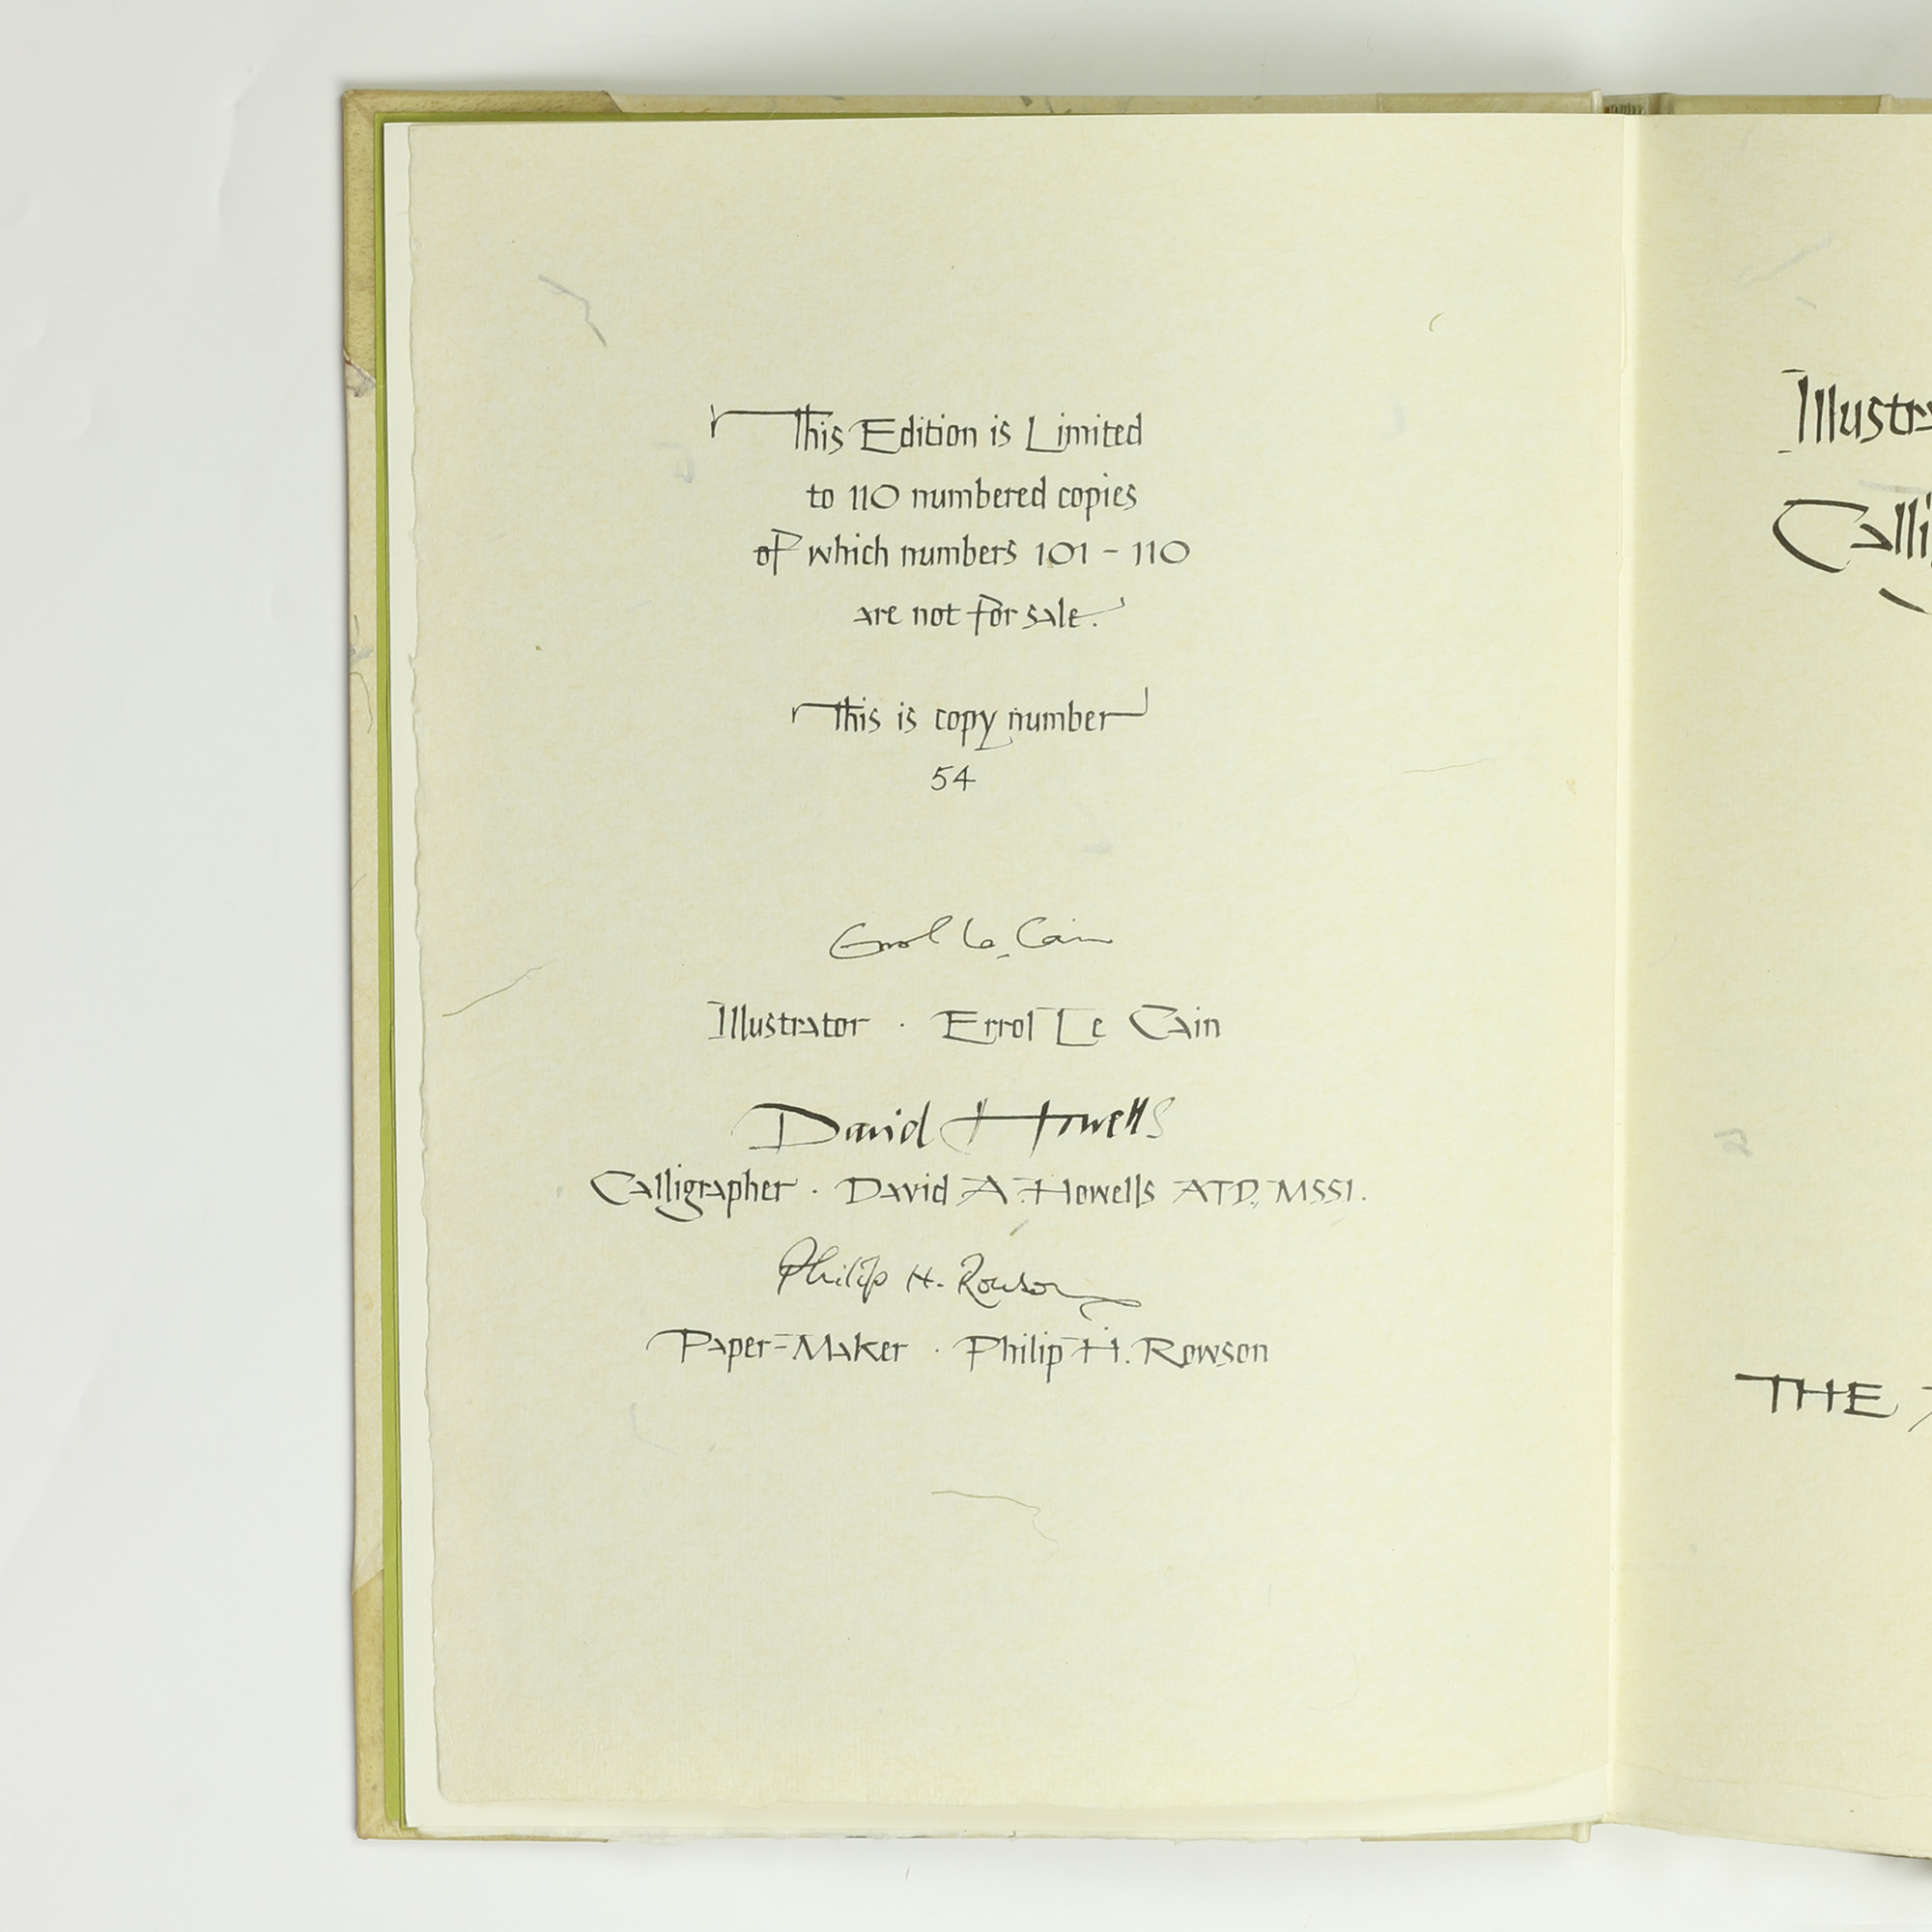 This Edition is Limited
to 110 numbered copies
of which numbers 101 - 110
are not for sale.
This is copy number
54
Errol Le Cain
Illustrator · Errol Le Cain
David Howells
Calligrapher · David A. Howells ATD., MSSI.
Philip H. Rowson
Paper-Maker · Philip H. Rowson
Illustra
Calli
THE